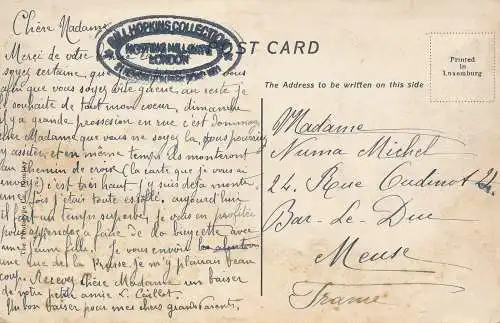 Chère Madame
WILL HOPKINS COLLECTION
NOTTING HILL GATE
LONDON
POST CARD
Printed
in
Luxemburg
The Address to be written on this side
Merci de votre
soyez certaine que
que vous soyez vite guérie au reste je
le souhaite de tout mon coeur, dimanche
il y a grande prossession en rue c'est dommage
Madame que vous ne soyez la, vous pourriez
y assiter, et en même temps ils monteront
chemin de croix (la carte que je vous ai
envoyé) c'est très haut j'y suis déjà monté
fois j'étais toute essoflé. aujourd'hui
il fait un temps superbe, je vais en profiter
pour apprendre a faire de la bicyclette avec
une jeune fille. Je vous envoie
une vue de la Presse je m'y plairais beau
coup. Recevez Chère Madame un baiser
de votre petite amie L. Caillot.
Un bon baiser pour mes chers grands Parents.
Madame
Numa Michel
24. Rue Oudinot 24
Bar-Le-Duc
Meuse
France